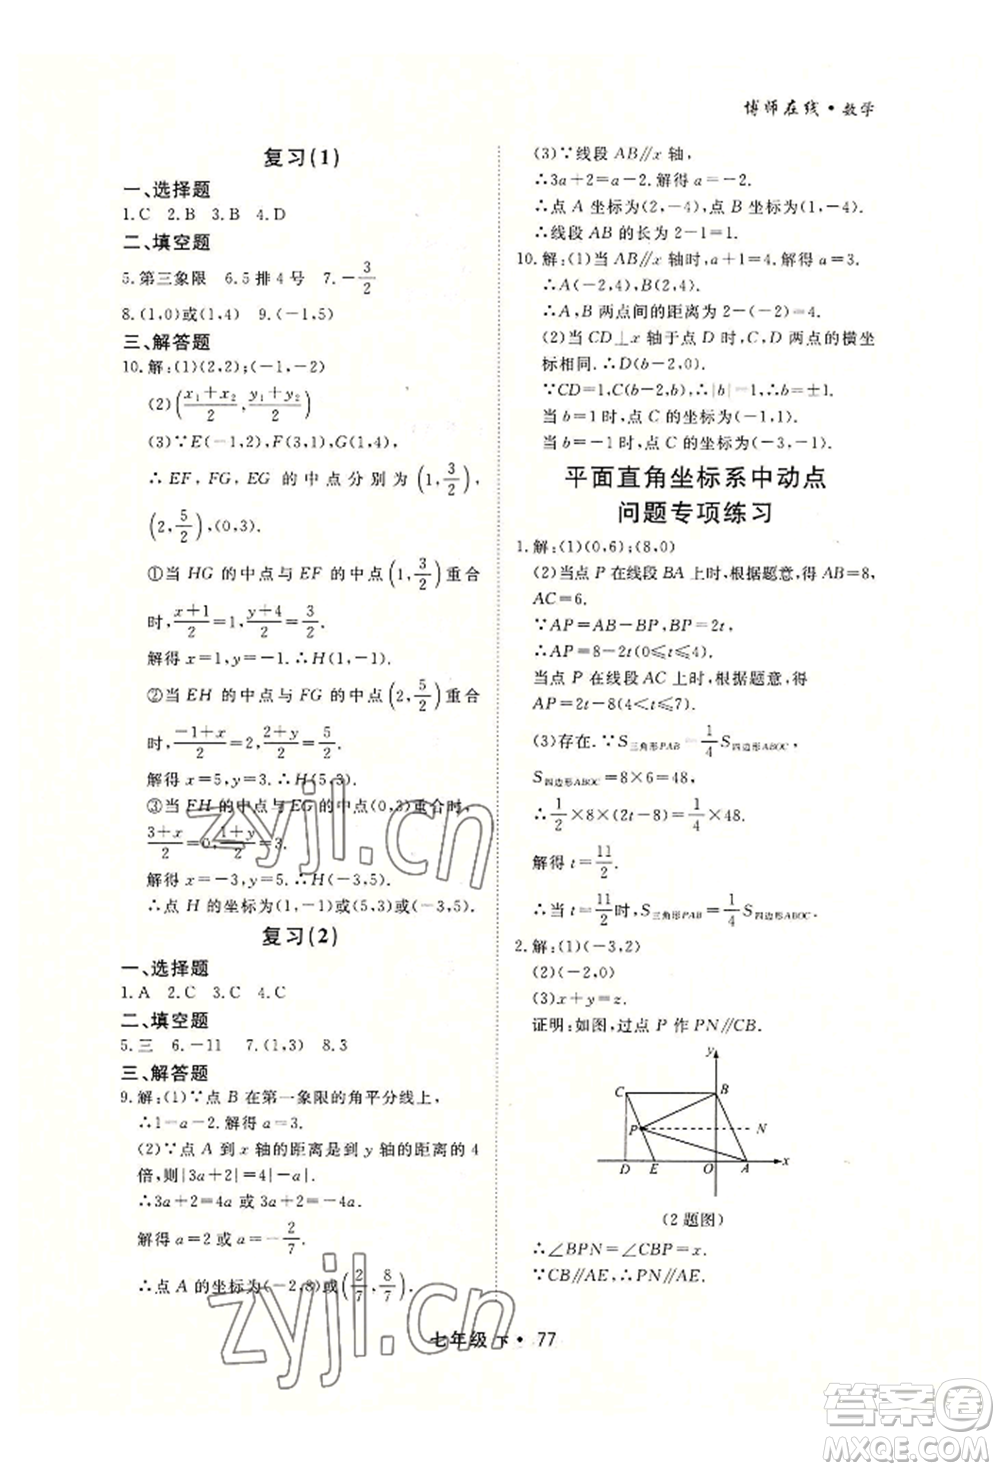 博师在线·数学
复习(1)
一、选择题
1.C 2.B 3.B 4.D
二、填空题
5.第三象限 6.5排4号 7.-3/2
8.(1,0)或(1,4) 9.(-1,5)
三、解答题
10.解:(1)(2,2);(-1,-2)
(2)((x₁+x₂)/2, (y₁+y₂)/2)
(3)∵E(-1,2),F(3,1),G(1,4),
∴EF,FG,EG 的中点分别为(1,3/2),
(2,5/2),(0,3).
①当 HG 的中点与 EF 的中点(1,3/2)重合
时,(x+1)/2=1,(y+4)/2=3/2.
解得 x=1,y=-1.∴H(1,-1).
②当 EH 的中点与 FG 的中点(2,5/2)重合
时,(-1+x)/2=2,(2+y)/2=5/2.
解得 x=5,y=3.∴H(5,3).
③当 EH 的中点与 EG 的中点(0,3)重合时,
(3+x)/2=0,
解得 x=-3,y=5.∴H(-3,5).
∴点 H 的坐标为(1,-1)或(5,3)或(-3,5).
复习(2)
一、选择题
1.A 2.C 3.C 4.C
二、填空题
5.三 6.-11 7.(1,3) 8.3
三、解答题
9.解:(1)∵点 B 在第一象限的角平分线上,
∴1-a=-2.解得 a=3.
(2)∵点 A 到 x 轴的距离是到 y 轴的距离的 4
倍,则|3a+2|=4|-a|.
∴3a+2=4a 或3a+2=-4a.
解得 a=2或 a=-2/7.
∴点 A 的坐标为(-2,8)或(2/7,8/7).
(3)∵线段 AB∥x 轴,
∴3a+2=-4.解得 a=-2.
∴点 A 坐标为(2,-4),点 B 坐标为(3,-4).
∴线段 AB 的长为3-2=1.
10.解:(1)当 AB∥x 轴时,a+1=4.解得 a=3.
∴A(-2,4),B(2,4).
∴A,B 两点间的距离为2-(-2)=4.
(2)当 CD⊥x 轴于点 D 时,C,D 两点的横坐
标相同.∴D(b-2,0).
∵CD=1,C(b-2,b),∴|b|=1.∴b=±1.
当 b=1时,点 C 的坐标为(-1,1).
当 b=-1时,点 C 的坐标为(-3,-1).
平面直角坐标系中动点
问题专项练习
1.解:(1)(0,6);(8,0)
(2)当点 P 在线段 BA 上时,根据题意,得 AB=8,
AC=6.
∵AP=AB-BP,BP=2t,
∴AP=8-2t(0≤t≤4).
当点 P 在线段 AC 上时,根据题意,得
AP=2t-8(4<t≤7).
(3)存在.∵S三角形PAB=1/4 S四边形ABOC,
S四边形ABOC=8×6=48,
∴1/2×8×(2t-8)=1/4×48.
解得 t=11/2.
∴当 t=11/2时,S三角形PAB=1/4 S四边形ABOC.
2.解:(1)(-3,2)
(2)(-2,0)
(3)x+y=z.
证明:如图,过点 P 作 PN∥CB.
y
C B
P N
D E O A x
(2题图)
∴∠BPN=∠CBP=x.
∵CB∥AE,∴PN∥AE.
七年级 下·77
zyjl.cn
zyjl.cn
答案卷
MXQE.COM